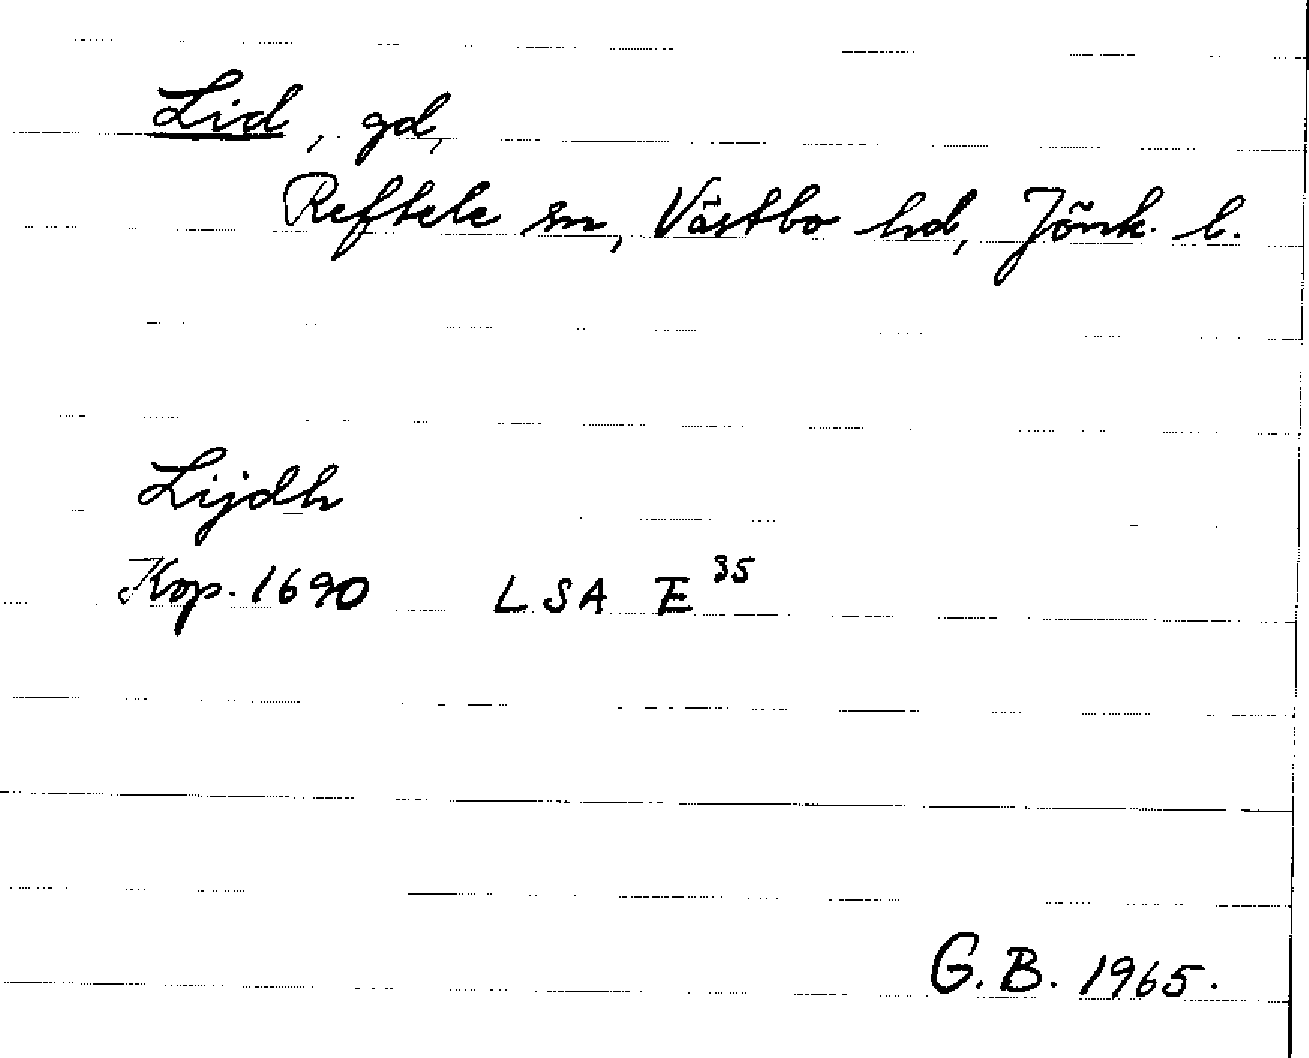 Lid, gd,
Reftele sn, Västbo hd, Jönk. l.
Lijdh
Kop. 1690 LSA E 35
G. B. 1965.